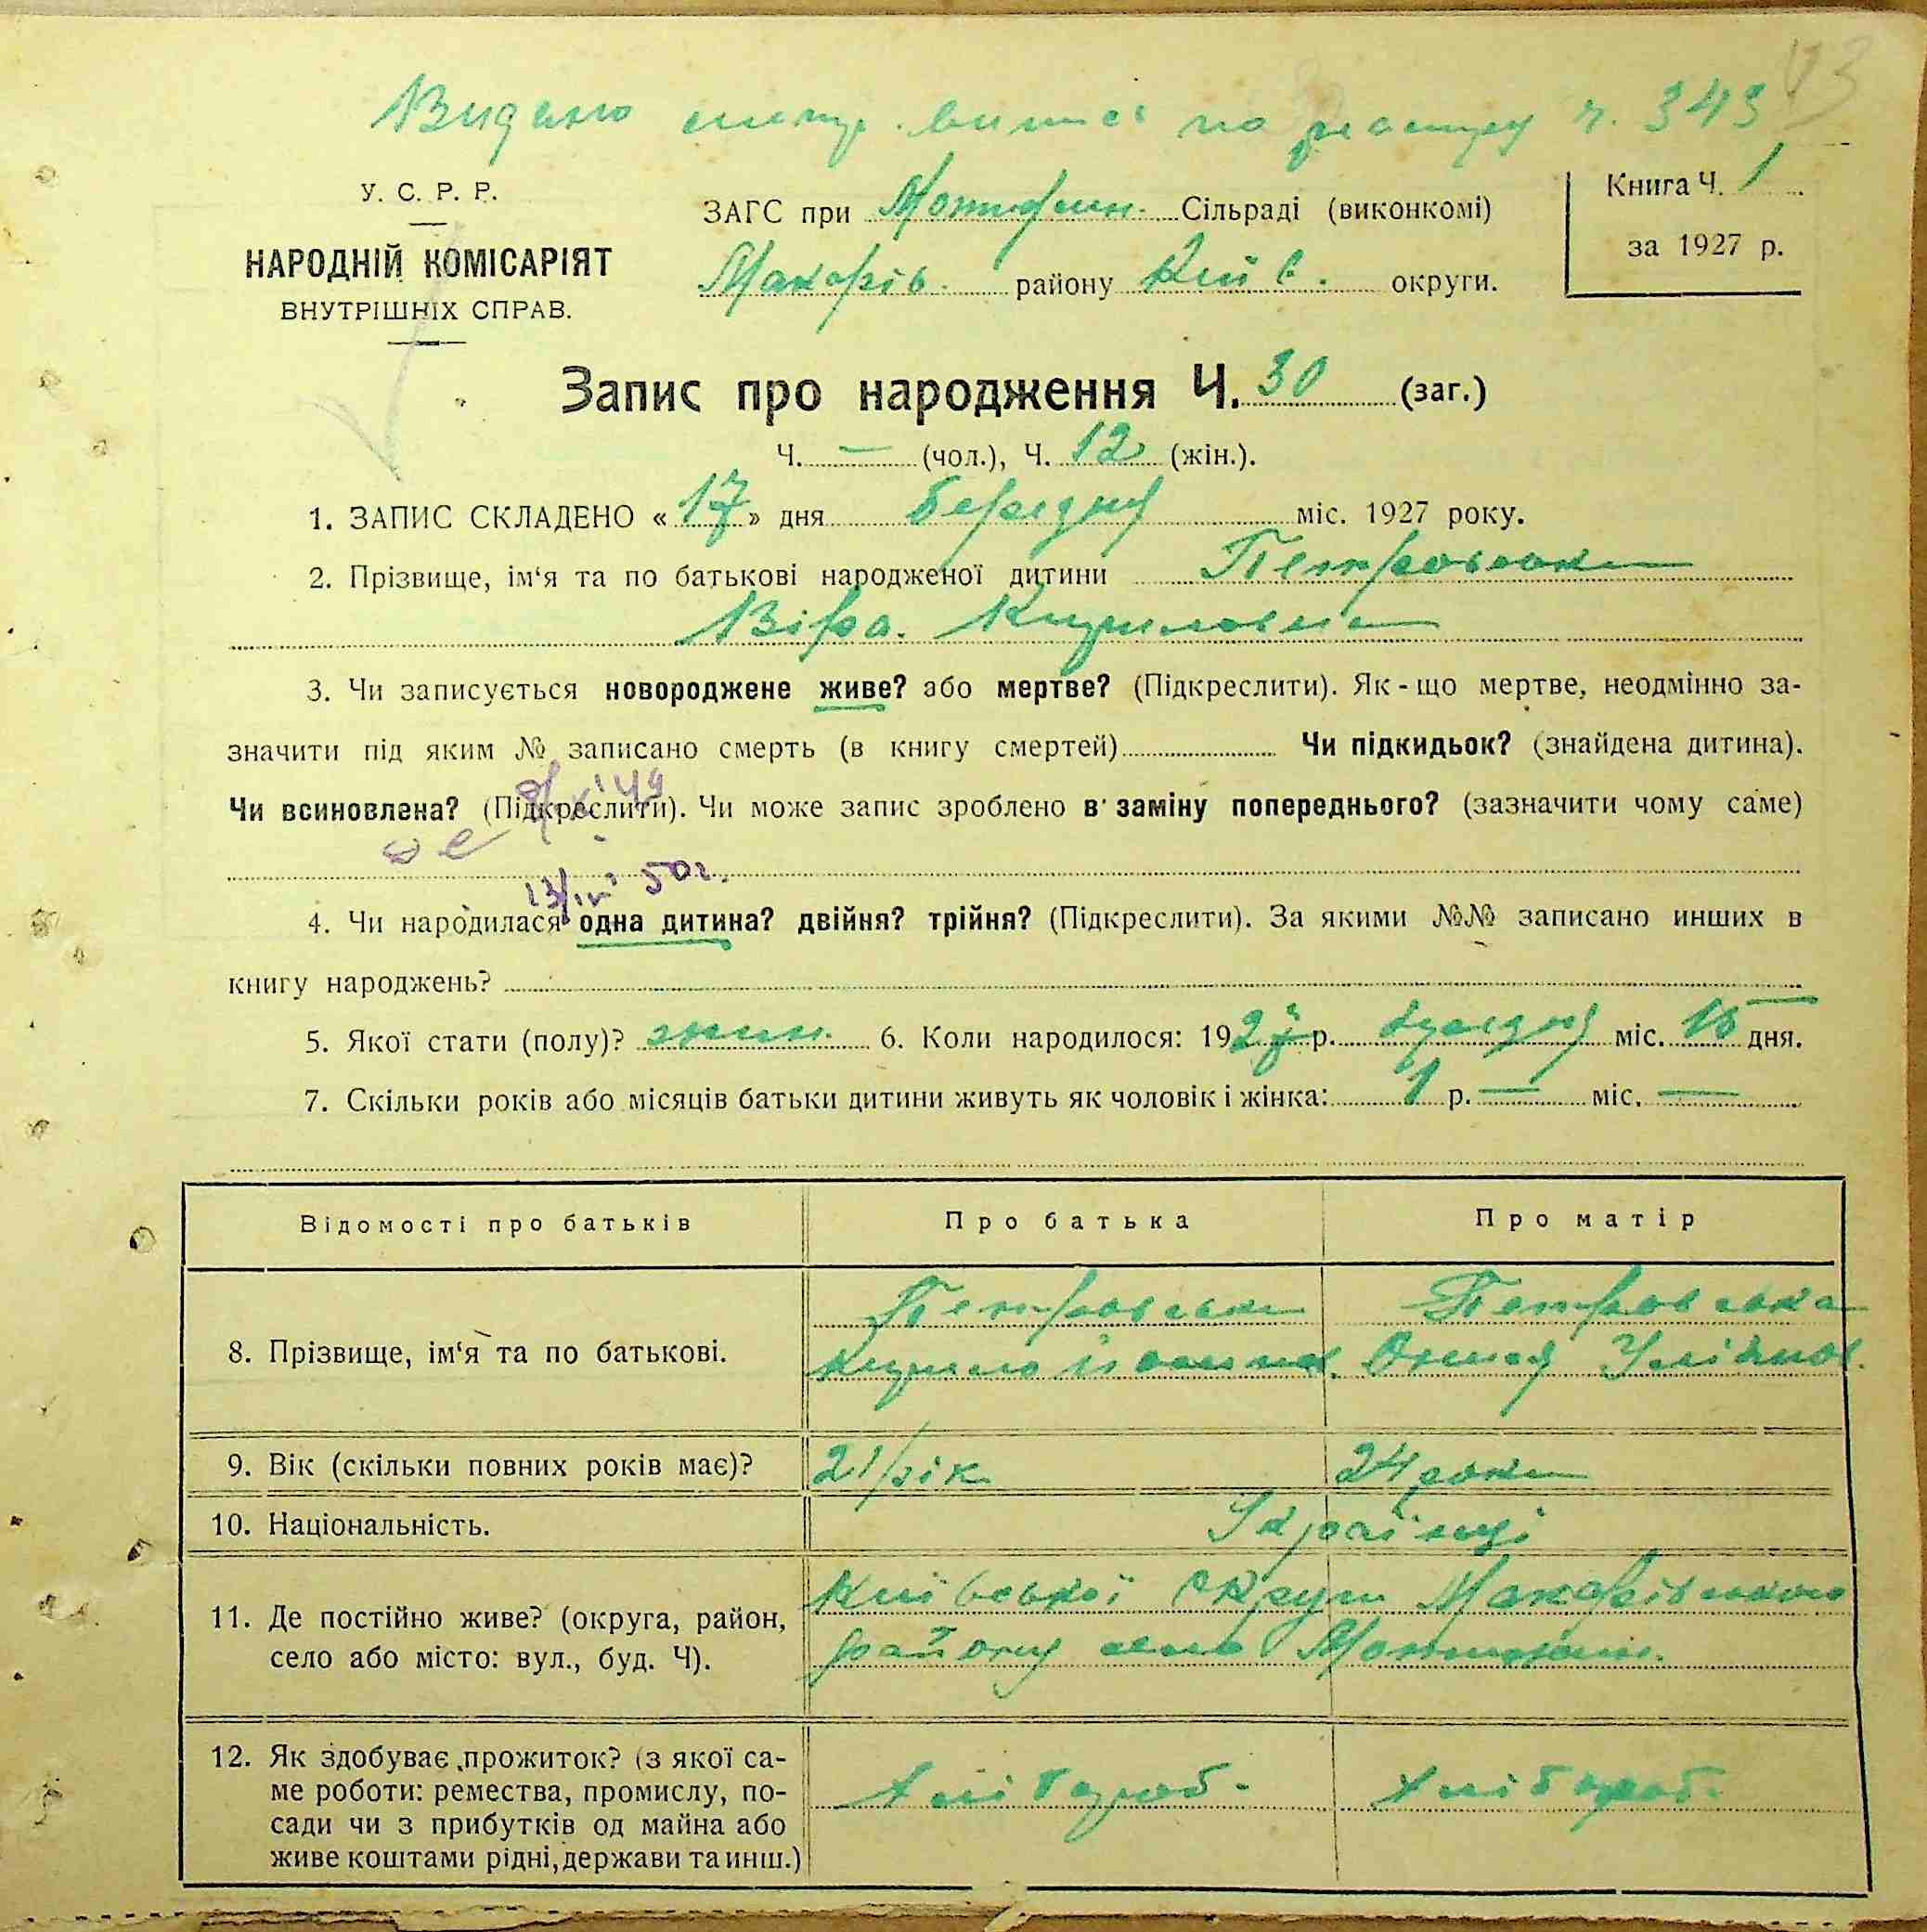 Видано випис по реєстру ч. 343
У. С. Р. Р.
НАРОДНІЙ КОМІСАРІЯТ
ВНУТРІШНІХ СПРАВ.
ЗАГС при Мотижин. Сільраді (виконкомі)
Макарів. району Київ. округи.
Книга Ч. 1
за 1927 р.
Запис про народження Ч. 30 (заг.)
Ч. — (чол.), Ч. 12 (жін.).
1. ЗАПИС СКЛАДЕНО «17» дня березня міс. 1927 року.
2. Прізвище, ім‘я та по батькові народженої дитини Петровська
Віра Кириловна
3. Чи записується новороджене живе? або мертве? (Підкреслити). Як-що мертве, неодмінно за-
значити під яким № записано смерть (в книгу смертей) Чи підкидьок? (знайдена дитина).
Чи всиновлена? (Підкреслити). Чи може запис зроблено в заміну попереднього? (зазначити чому саме)
50г.
4. Чи народилася одна дитина? двійня? трійня? (Підкреслити). За якими №№ записано инших в
книгу народжень?
5. Якої стати (полу)? жін. 6. Коли народилося: 1927 р. березня міс. 15 дня.
7. Скільки років або місяців батьки дитини живуть як чоловік і жінка: 1 р. — міс. —
Відомості про батьків Про батька Про матір
8. Прізвище, ім‘я та по батькові.
Петровськи Петровська
Кирило Улянов.
9. Вік (скільки повних років має)? 21 рік 24 роки
10. Національність. Українці
11. Де постійно живе? (округа, район,
село або місто: вул., буд. Ч).
Київської округи Макарівського
району село Мотижин.
12. Як здобуває прожиток? (з якої са-
ме роботи: ремества, промислу, по-
сади чи з прибутків од майна або
живе коштами рідні, держави та инш.)
Хлібороб. Хлібороб.